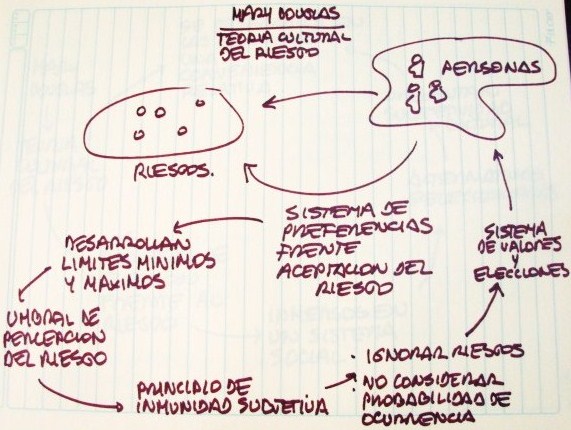 MARY DOUGLAS
TEORIA CULTURAL
DEL RIESGO
PERSONAS
RIESGOS.
SISTEMA DE
PREFERENCIAS
FRENTE
ACEPTACION DEL
RIESGO
DESARROLLAN
LIMITES MINIMOS
Y MAXIMOS
UMBRAL DE
PERCEPCION
DEL RIESGO
PRINCIPIO DE
INMUNIDAD SUBJETIVA
· IGNORAR RIESGOS
· NO CONSIDERAR
PROBABILIDAD DE
OCURRENCIA
SISTEMA
DE VALORES
Y
ELECCIONES